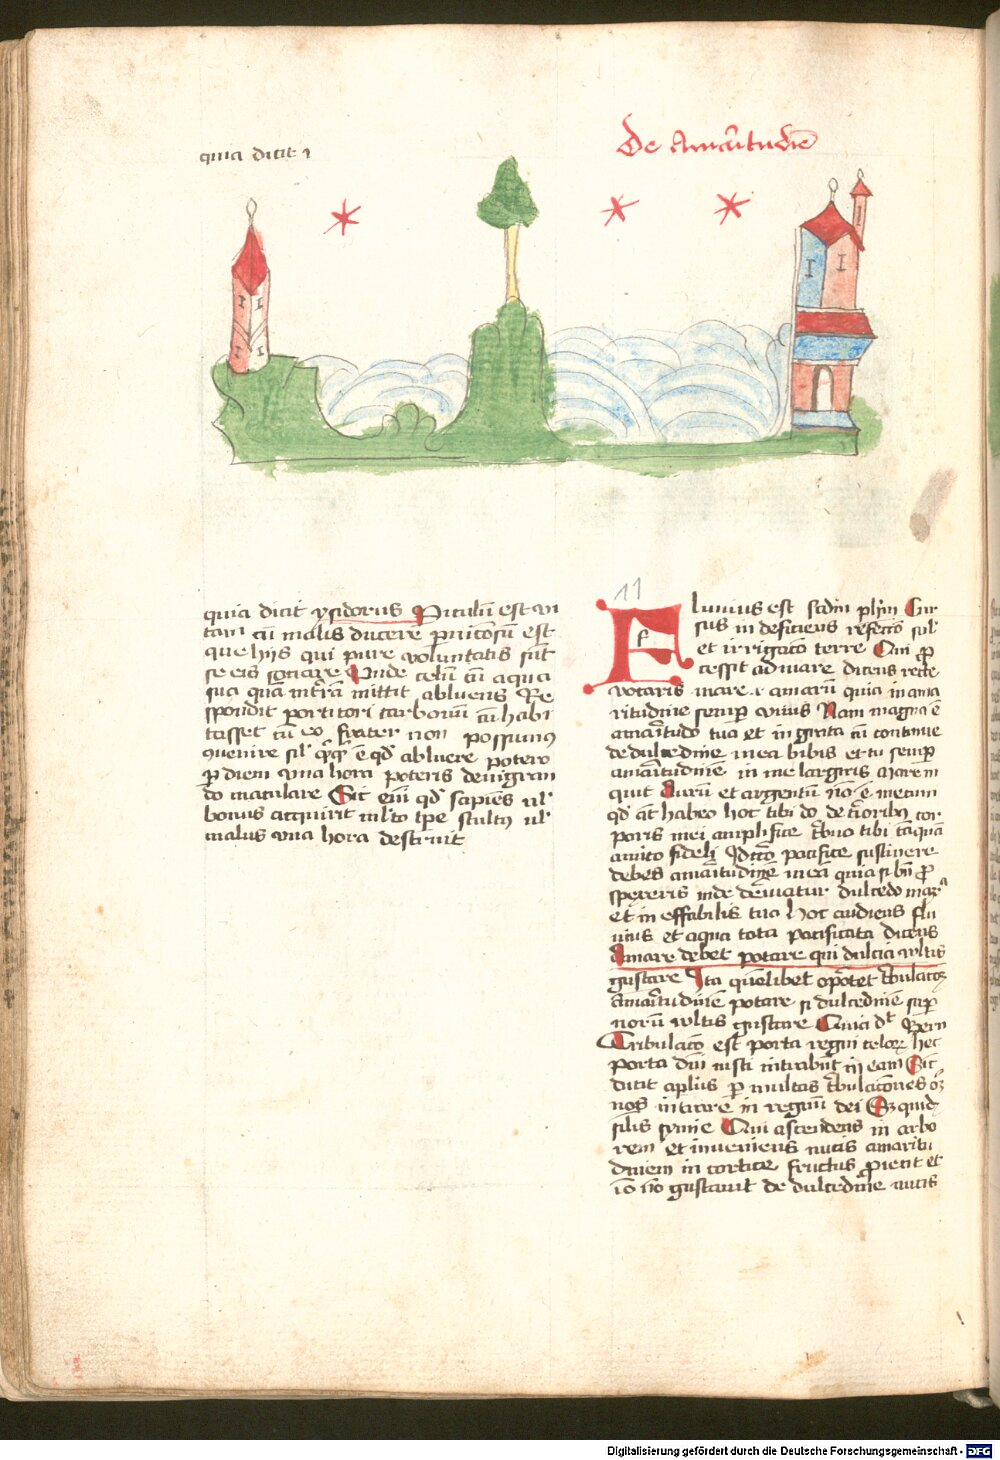 quia dicit ı
De Amãritudĩe
quia dicit ysidorus Piculũ est vi
tam cũ malis ducere pernicosũ est
que hijs qui praue voluntatis sũt
se eis sociare Unde celũ cũ aqua
sua qua mĩram mittit abluens Re
spondit portitori carbonũ cũ habi
tasset cũ eo frater non possumꝰ
ꝯuenire sil' qͥqͥ ẽ qd' abluere potero
ꝑ diem vna hora poteris denigran
do maculare Sic eñ qd' sapiẽs ul'
bonus acquirit mĺto tꝑe stultꝰ ul'
malus vna hora destruit
11
Fluuius est scdm plĩm Cur
sus in deficiens refectõ sul'
et irrigacõ terre Qui ꝓ
cessit ad mare dicens recte
vocaris mare .i. amarũ quia in ama
ritudine semꝑ viuis Nam magna ẽ
amãritudo tua et in grata cũ continue
de dulcedine mea bibis et tu semꝑ
amãritudinẽ in me largiris Mare in
quit Aurũ et argentũ nõ ẽ mecum
qd' añt habeo hoc tibi do de cõribꝰ cor
poris mei amplifice tribuo tibi tãquã
amico fideli Idcõ pacifice sustinere
debes amãritudinẽ meã quia si bñ ꝓ
spexeris inde deriuatur dulcedo mar
et in effabilis tua Hoc audiens flu
uius et aqua tota pacificata dicens
Amare debet potare qui dulcia vltis
gustare Ita quẽlibet oportet tribulacõꝝ
Amãritudinẽ potare si dulcedinẽ suꝑ
norũ vltis gustare Quia dt Bern
Tribulacõ est porta regni celoꝝ hec
porta dñi iusti intrabũt in eam Sic
dicit aplũs ꝑ multas tribulacões oꝫ
nos intrare in regnũ dei Et quid
silis symie Qui ascendens in arbo
rem et inueniens nucis amaritu
dinem in cortice fructus ꝓiecit et
io nõ gustauit de dulcedine nucis
Digitalisierung gefördert durch die Deutsche Forschungsgemeinschaft - DFG